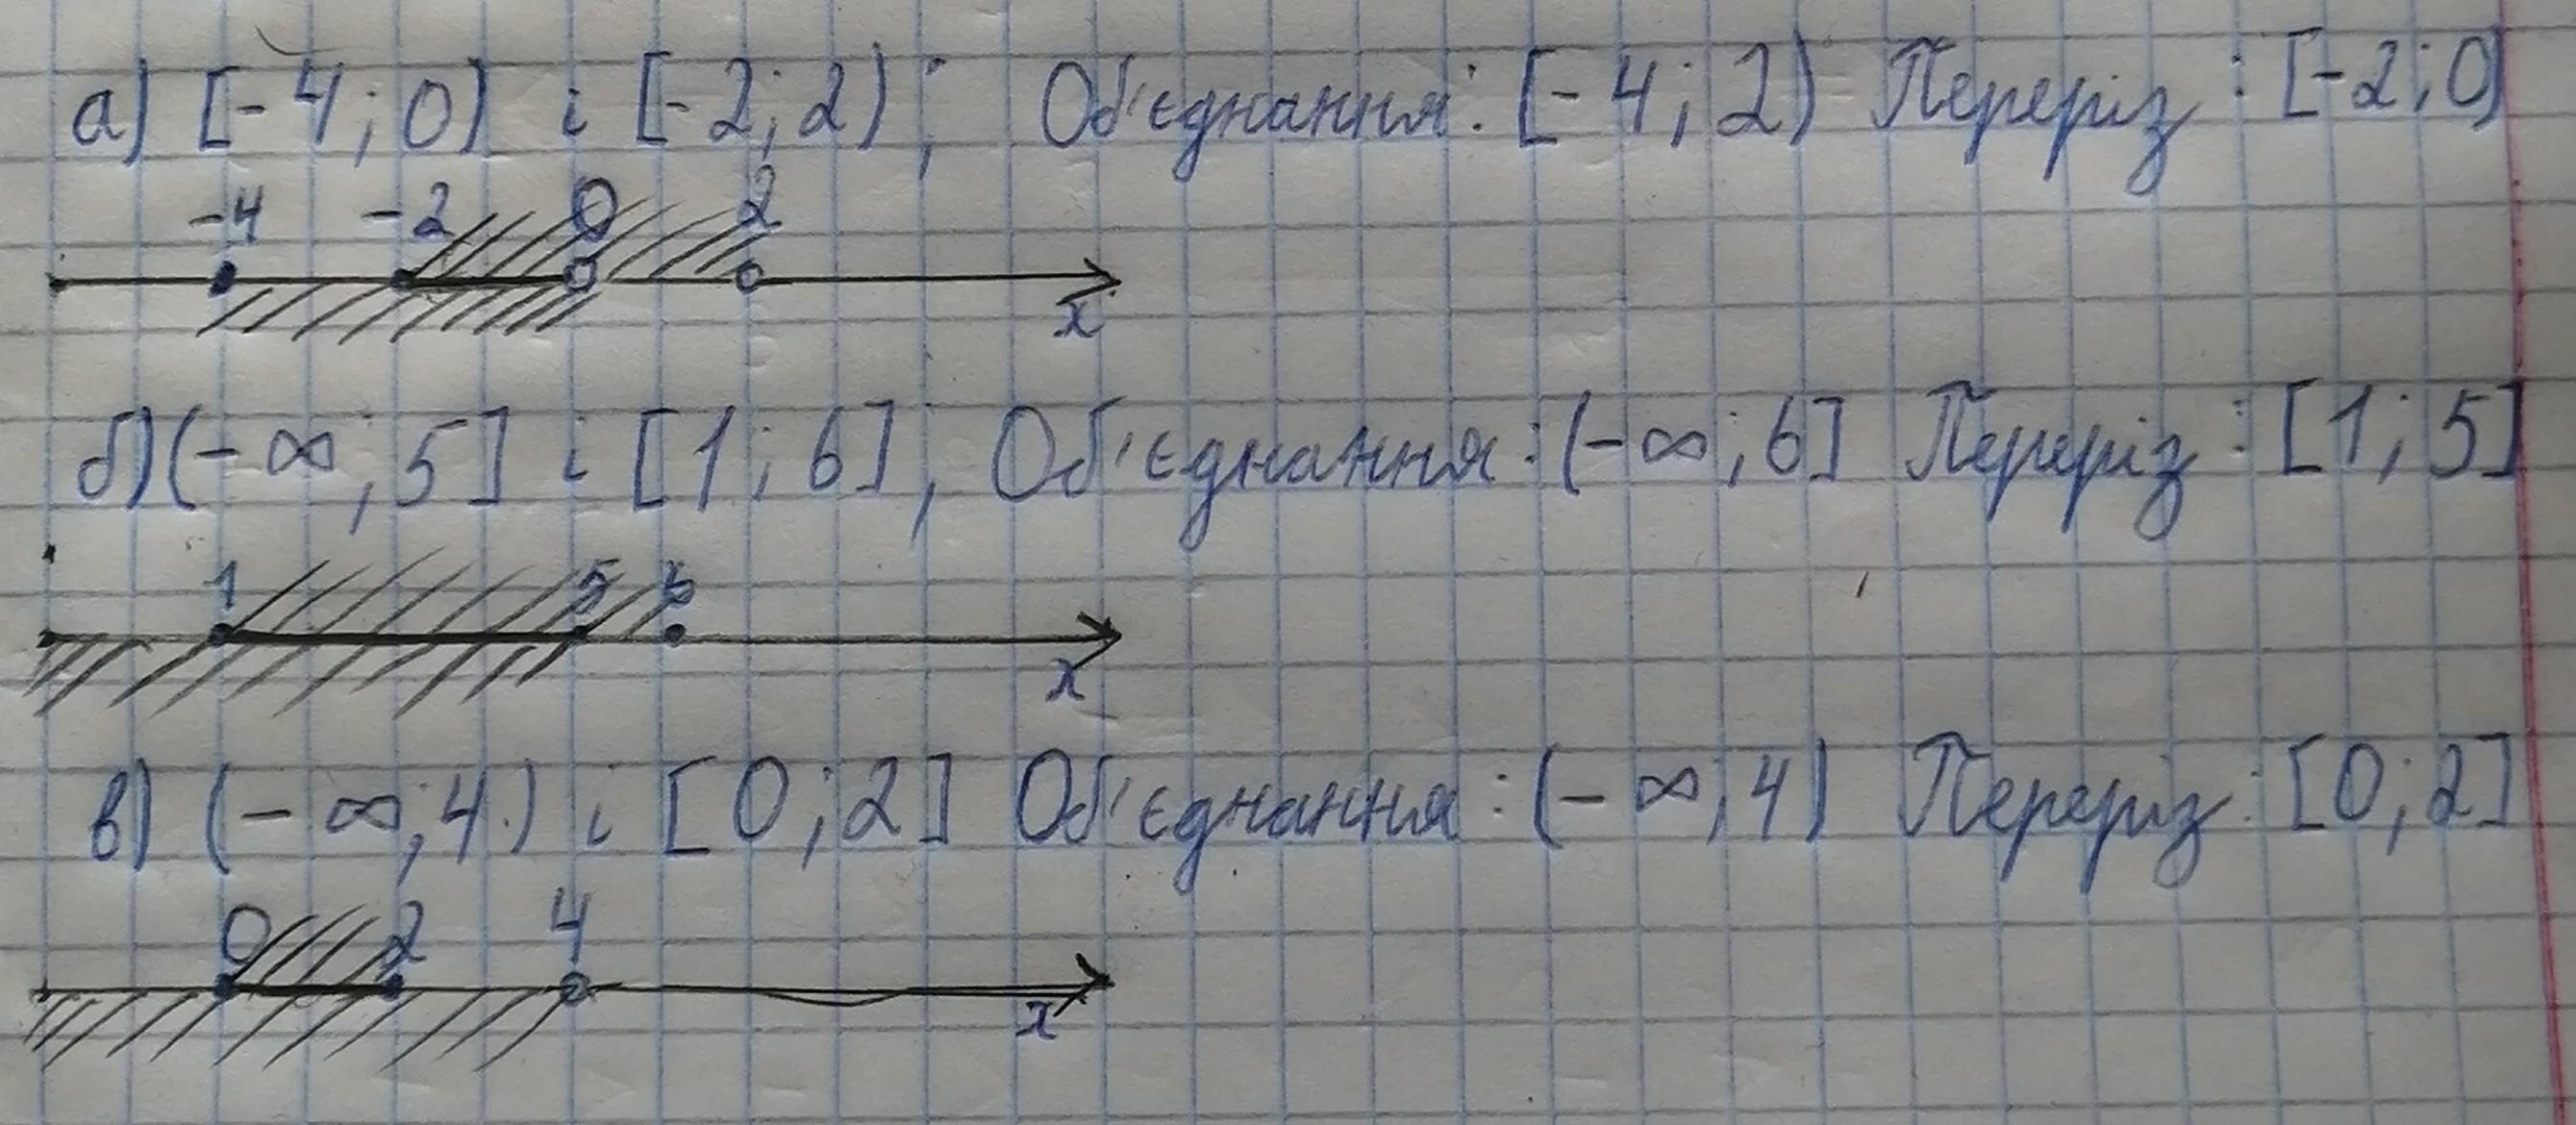 а) [-4; 0) і [-2; 2); Об'єднання: [-4; 2) Переріз: [-2; 0)
-4 -2 0 2
x
б) (-∞; 5] і [1; 6]; Об'єднання: (-∞; 6] Переріз: [1; 5]
1 5 6
x
в) (-∞; 4) і [0; 2] Об'єднання: (-∞; 4) Переріз: [0; 2]
0 2 4
x